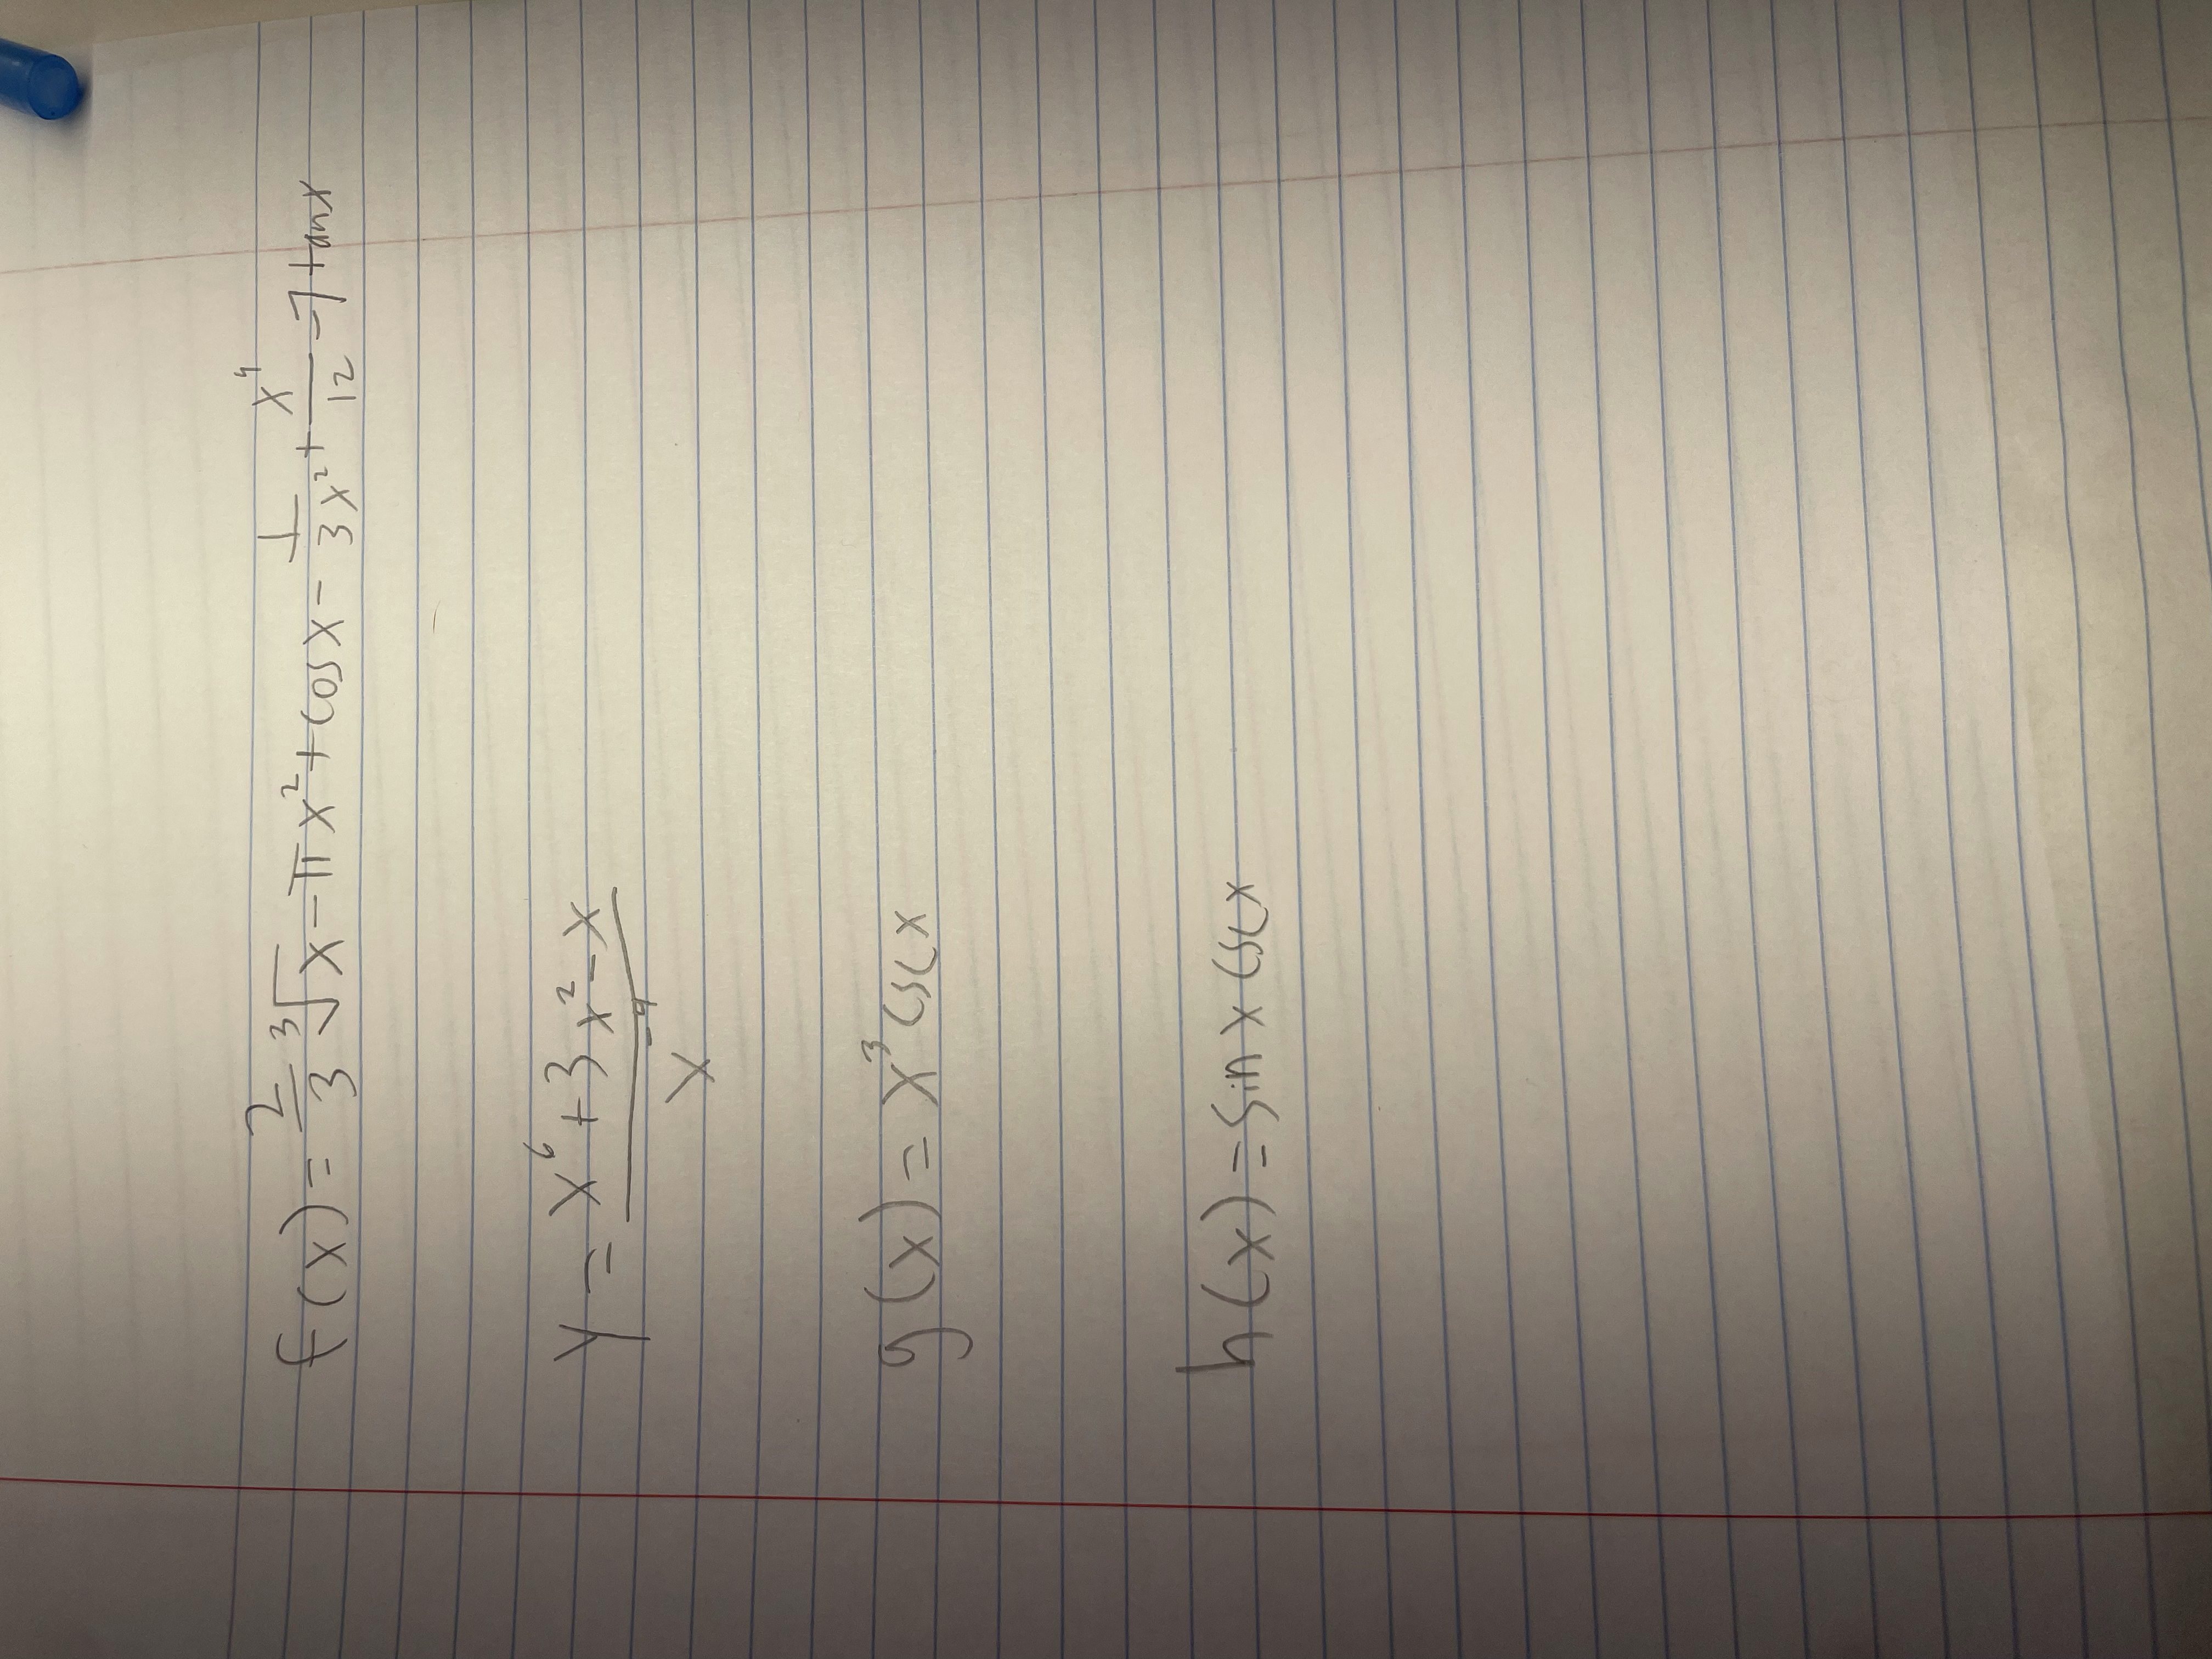 f(x) = 2/3 ∛x - πx² + cosx - 1/3x² + x⁴/12 - 7tanx
y = x⁶ + 3x² - x / x⁻⁴
g(x) = x³ cscx
h(x) = sinx cscx